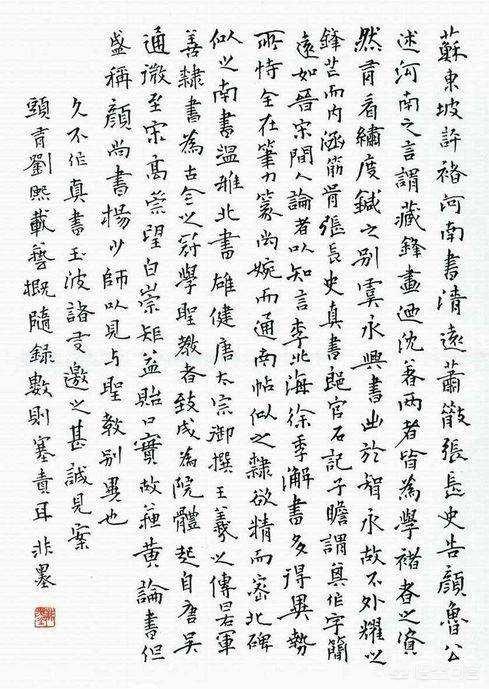 蘇東坡評褚河南書清遠蕭散張長史告顏魯公
述河南之言謂藏鋒畫迺沈著兩者皆為學褚者之資
然有看繡度鍼之別虞永興書出於智永故不外耀
鋒芒而內涵筋骨張長史真書郎官石記子瞻謂其作字簡
遠如晉宋間人論者以為知言李北海徐季海書多得異勢
所恃全在筆力篆尚婉而通南帖似之隸欲精而密北碑
似之南書溫雅北書雄健唐太宗御撰王羲之傳曰右軍
善隸書為古今之冠學聖教者致成為院體起自唐吳
通微至宋高崇望白崇矩益貽口實故蘇黃論書但
盛稱顏尚書楊少師以見與聖教別異也
久不作真書玉波諮 邀之甚誠見案
頭有劉熙載藝概隨錄數則塞責耳 非墨